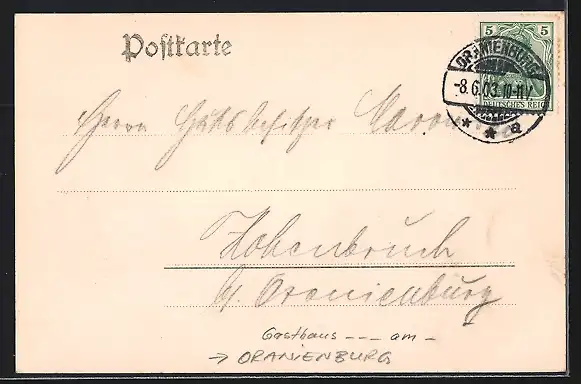 Postkarte
5 5
ORANIENBURG
-8.6.03.10-11V.
DEUTSCHES REICH
* * a
Herrn Gutsbesitzer
Hohenbruch
b/ Oranienburg
Gasthaus --- am -
→ ORANIENBURG